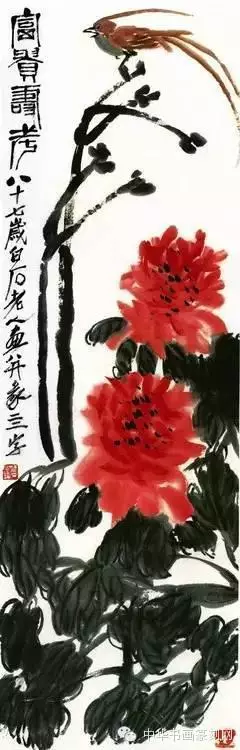 富貴壽考八十七歲白石老人畫并篆三字
中华书画篆刻网